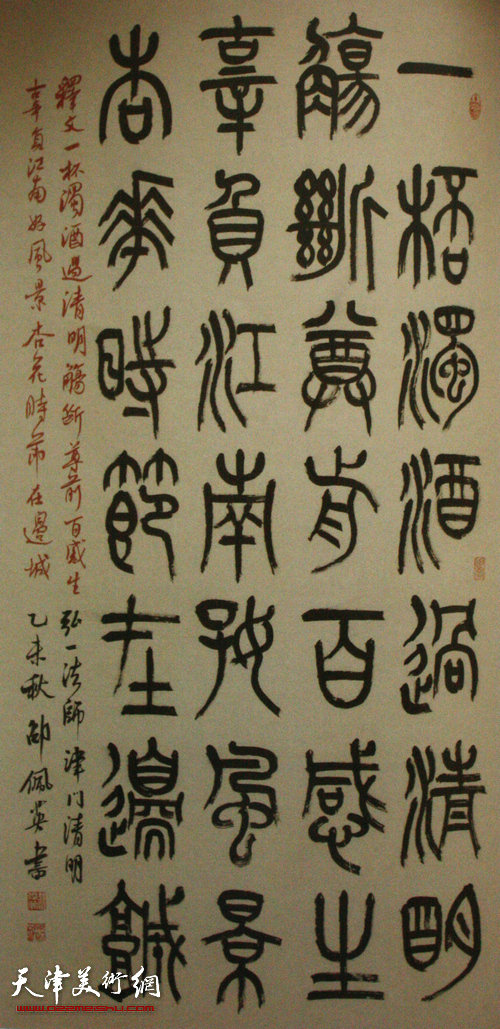 一桮濁酒過清明
觴斷尊前百感生
辜負江南好風景
杏花時節在邊城
釋文一杯濁酒過清明觴斷尊前百感生
辜負江南好風景杏花時節在邊城
弘一法師津門清明
乙未秋邵佩英書
天津美術網